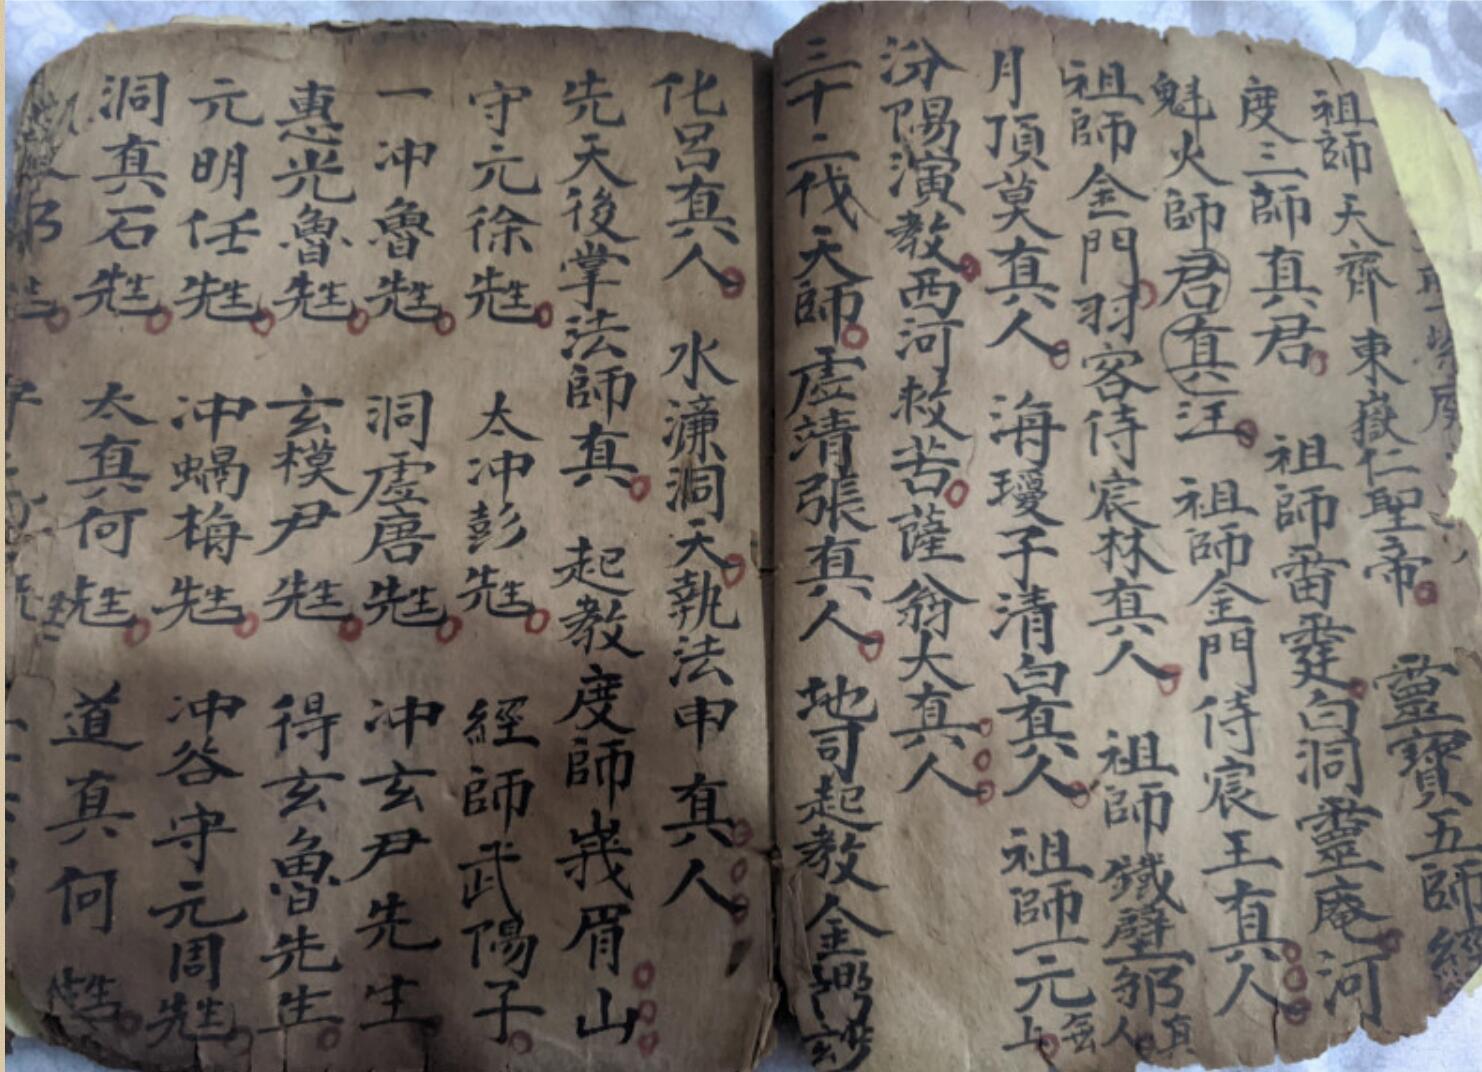 靈寶五師經
祖師天齊東嶽仁聖帝
度三師真君 祖師雷霆白洞靈庵河
魁火師君真汪 祖師金門侍宸王真人
祖師金門羽客侍宸林真人 祖師鐵壁鄒真人
月頂莫真人 海瓊子清白真人 祖師一元無上
汾陽演教西河救苦薩翁大真人
三十二代天師虛靖張真人 地司起教金門
化呂真人 水濂洞天執法申真人
先天後掌法師真 起教度師峩眉山
守元徐先生 太冲彭先生 經師武陽子
一冲魯先生 洞虛唐先生 冲玄尹先生
惠光魯先生 玄模尹先生 得玄魯先生
元明任先生 冲蝸梅先生 冲谷守元周先生
洞真石先生 太真何先生 道真何先生